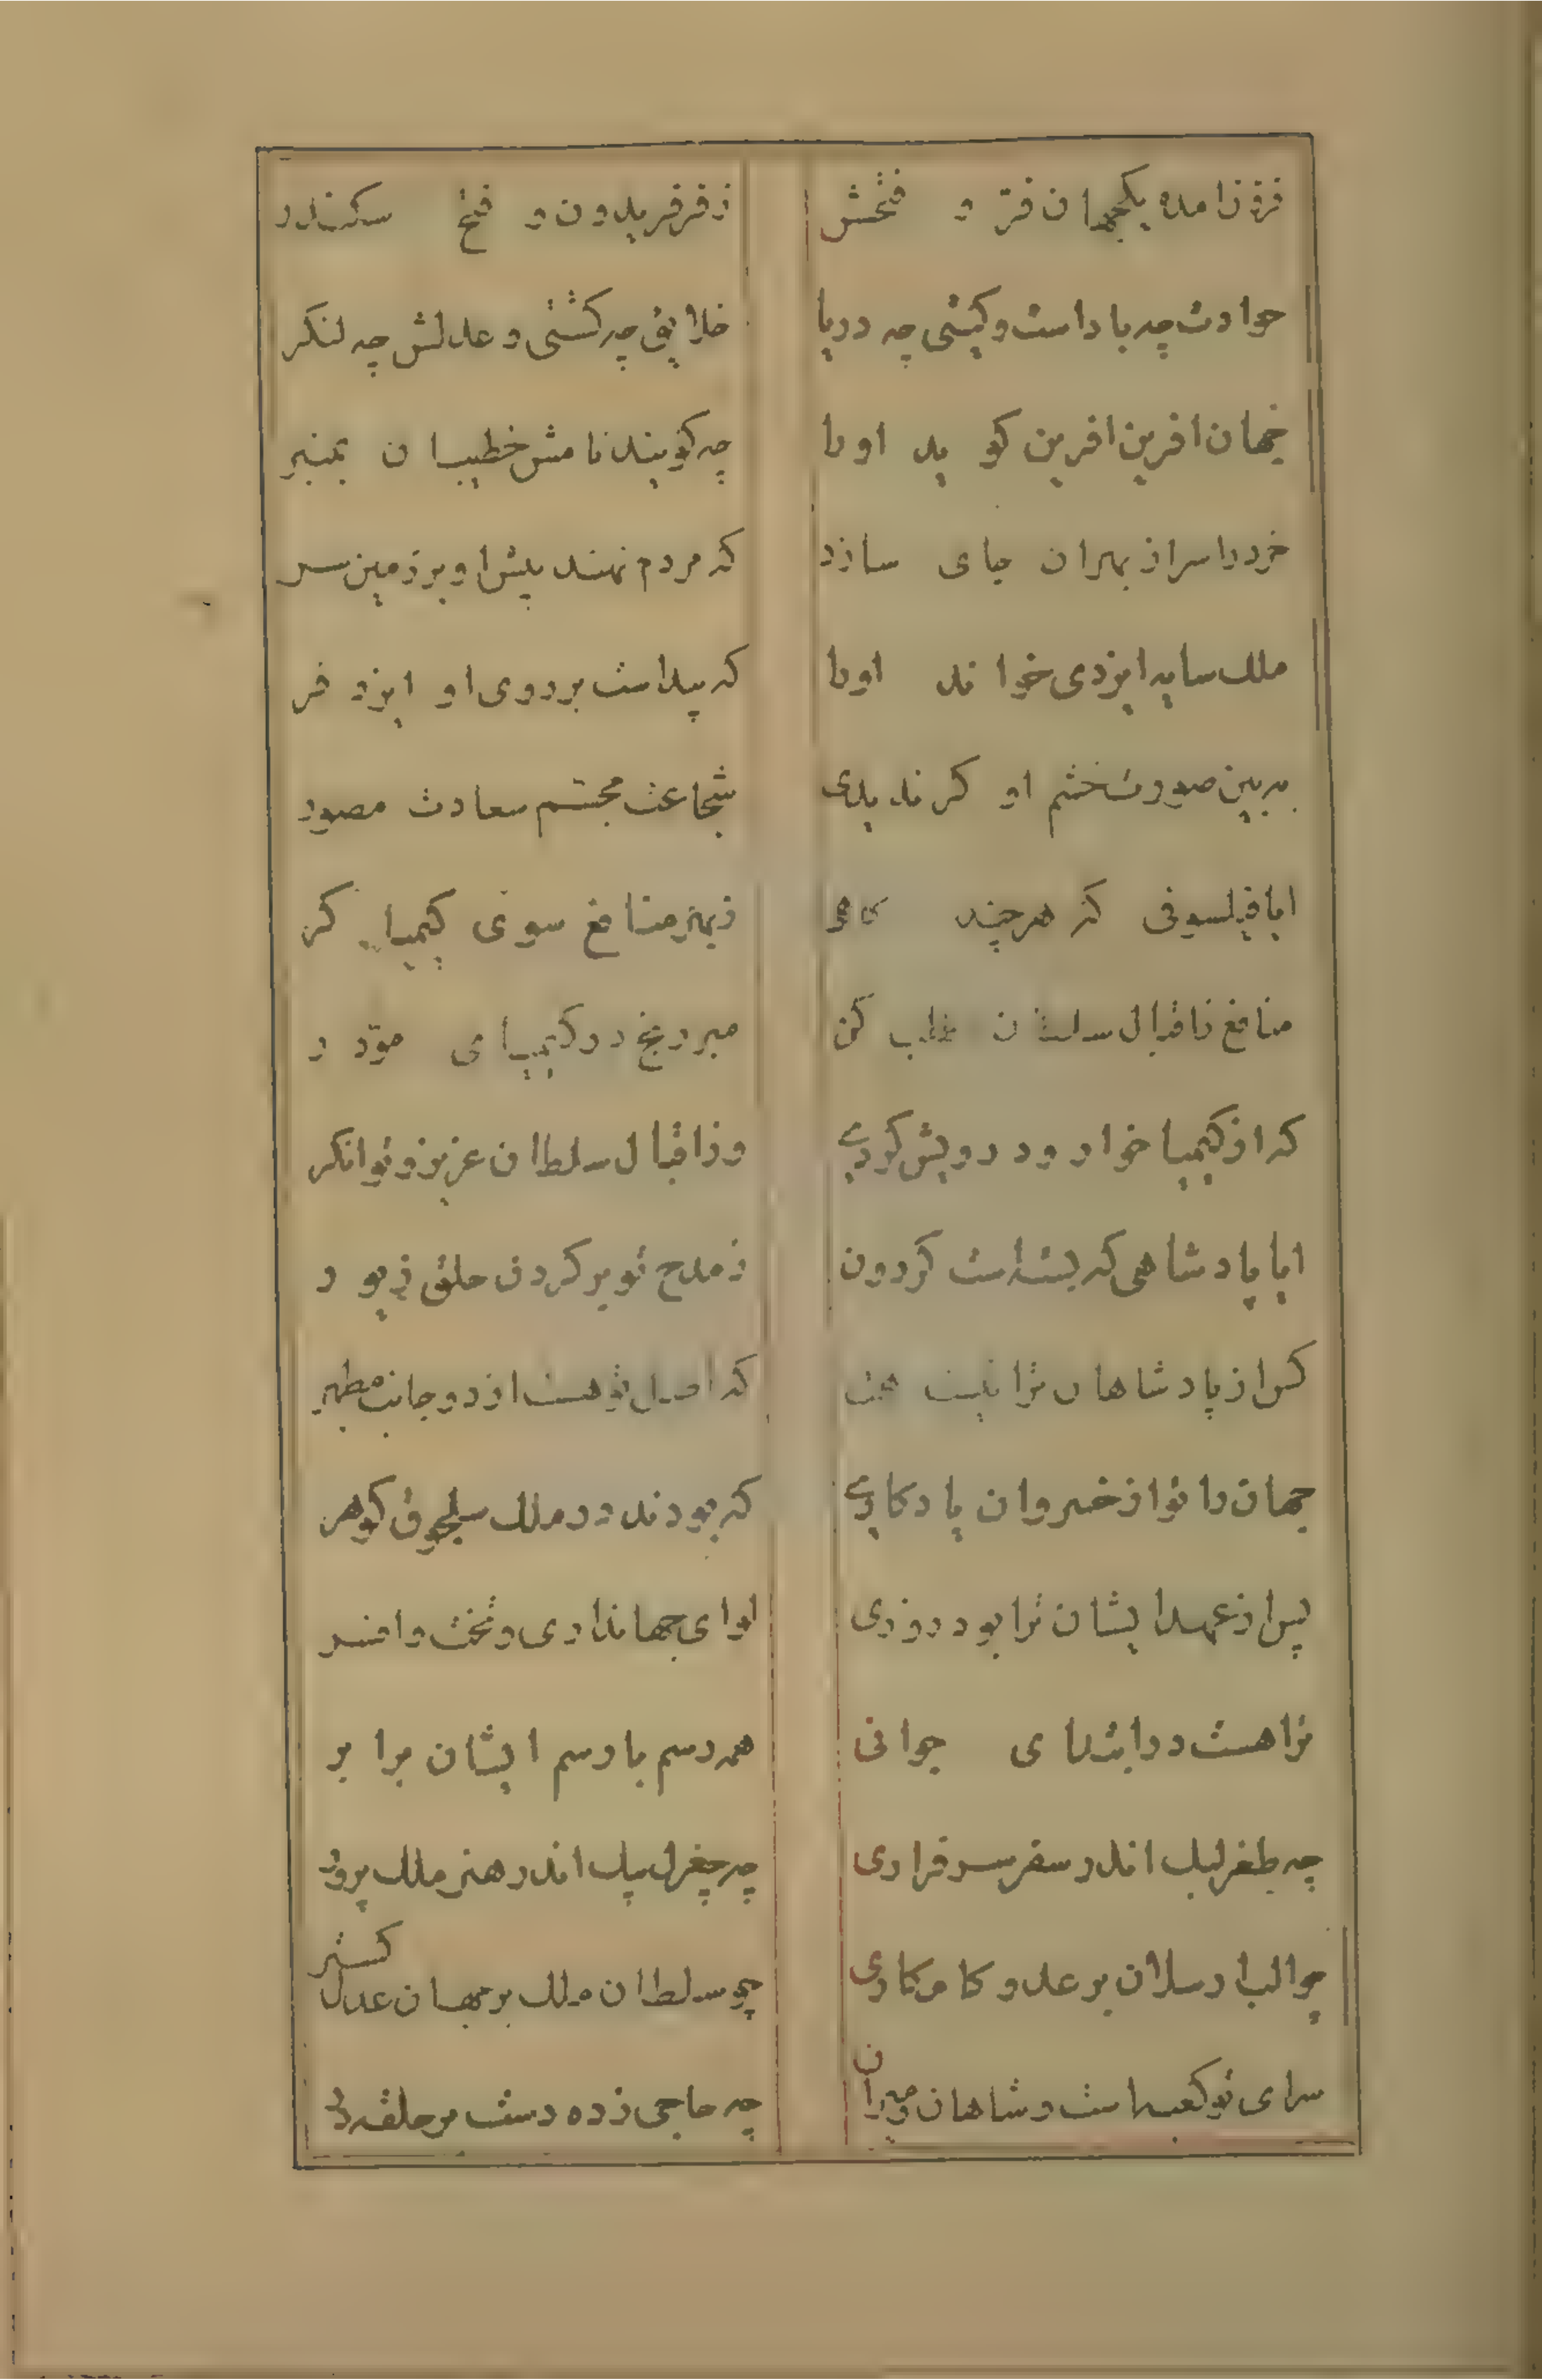 فزون امده یکجهان فرّ و فتحش زفر فریدون و فتح سکندر
حوادث چه باد است و کیتی چه دریا خلایق چه کشتی و عدلش چه لنکر
جهان افرین افرین کوید اورا چه کویند نامش خطیبان بمنبر
خرد را سر از بهر ان جای سازد که مردم نهند پیش او بر زمین سر
ملک سایه ایزدی خواند اورا که پیداست بر روی او ایزد فر
به بین صورت خشم او کر ندیدی شجاعت مجسّم سعادت مصور
ایا فیلسوفی که هر چند کاهی ز بهر منافع سوی کیمیا کر
منافع ز اقبال سلطان طلب کن مبر رنج در کیمیای مزوّر
که از کیمیا خوار و درویش کردی وز اقبال سلطان عزیز و توانکر
ایا پادشاهی که بسته است کردون ز مدح تو بر کردن خلق زیور
کس از پادشاهان ترا نیست همتا که اصل تو هست از دو جانب مطهر
جهان را تو از خسروان یادکاری که بودند در ملک سلجوق کوهر
پس از عهد ایشان ترا بود روزی لوای جهانداری و تخت و افسر
ترا هست در ابتدای جوانی همه رسم با رسم ایشان برابر
چه طغرلبک اندر سفر سرفرازی چه چغرل بیک اندر هنر ملک پرور
چو الب ارسلان بر عدو کامکاری چو سلطان ملک بر جهان عدل کستر
سرای تو کعبه است و شاهان و میران چه حاجی زده دست بر حلقه در